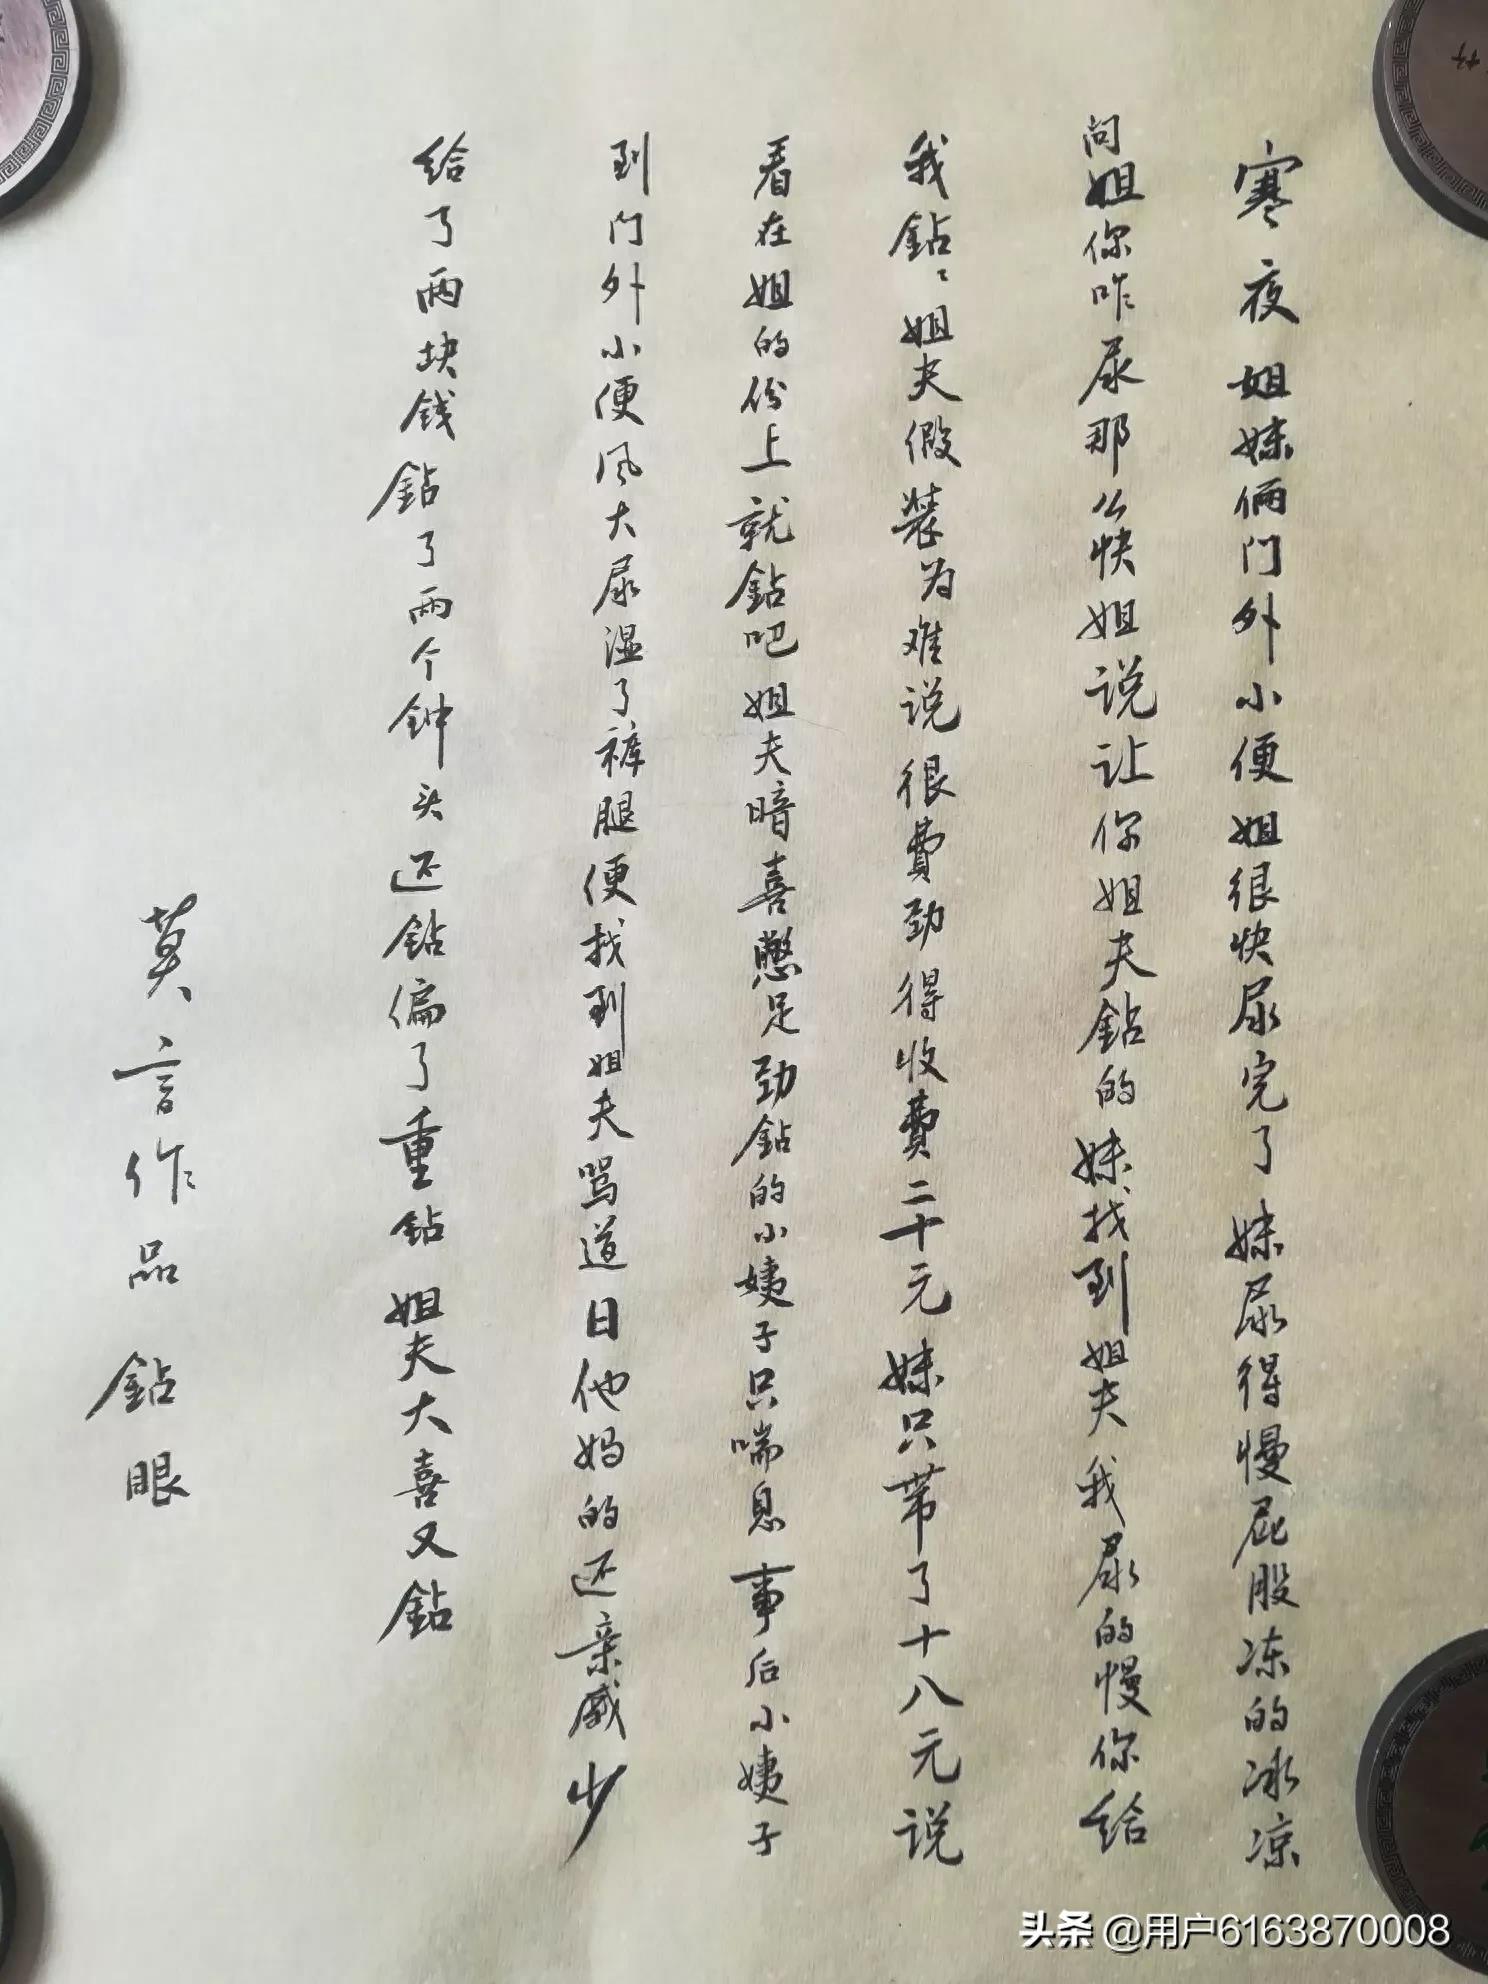 寒夜姐妹俩门外小便姐很快尿完了妹尿得慢屁股冻的冰凉
问姐你咋尿那么快姐说让你姐夫鉆的妹找到姐夫我尿的慢你给
我鉆鉆姐夫假装为难说很費劲得收費二十元妹只带了十八元说
看在姐的份上就鉆吧姐夫暗喜憋足劲鉆的小姨子只喘息事后小姨子
到门外小便风大尿湿了裤腿便找到姐夫骂道日他妈的还亲戚少
给了两块钱鉆了两个钟头还鉆偏了重鉆姐夫大喜又鉆
莫言作品鉆眼
头条 @用户6163870008